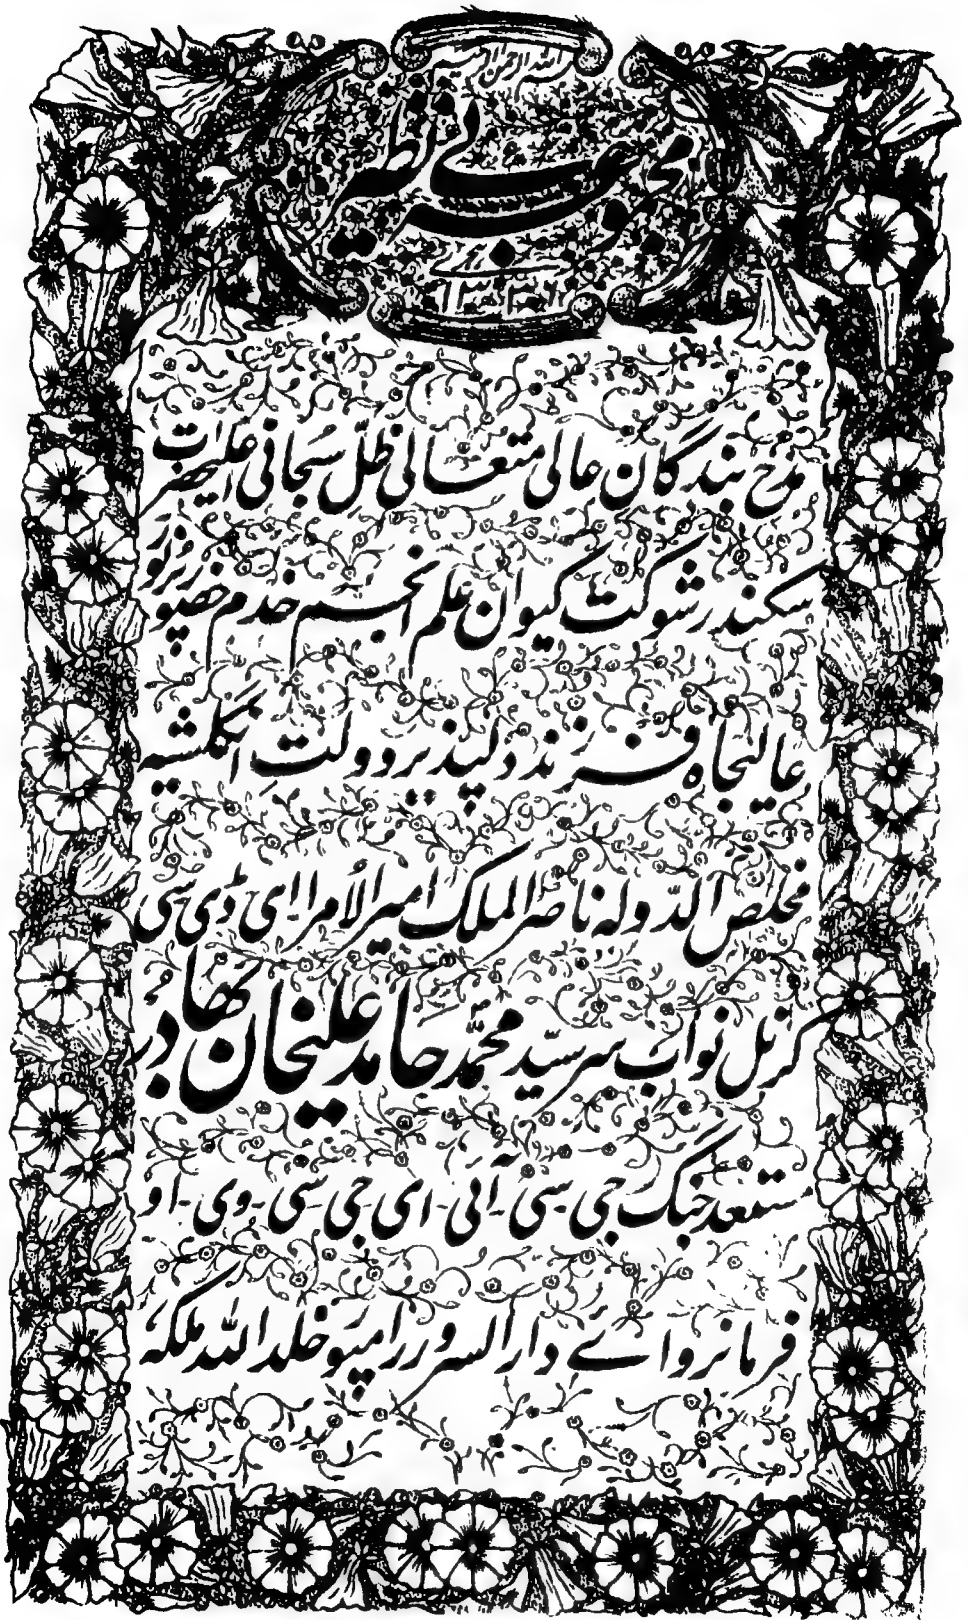 الله الرحمن الرحیم
عربی
۱۳۳۶
مدح بندگان عالی متعالی ظلِّ سبحانی اعلیحضرت
سکندر شوکت کیوان علم انجم خدم حضور پرنور
عالیجاہ فرزند دلپذیر دولتِ انگلشیہ
مخلص الدّولہ ناصر الملک امیر الأمرا اے ڈی سی
کرنل نواب سر سیّد محمّد حامد علیخان بہادر
مستعد جنگ جی۔سی۔آئی۔ای جی۔سی۔وی۔او
فرمانروائے دارالسرور رامپور خلد اللہ ملکہ